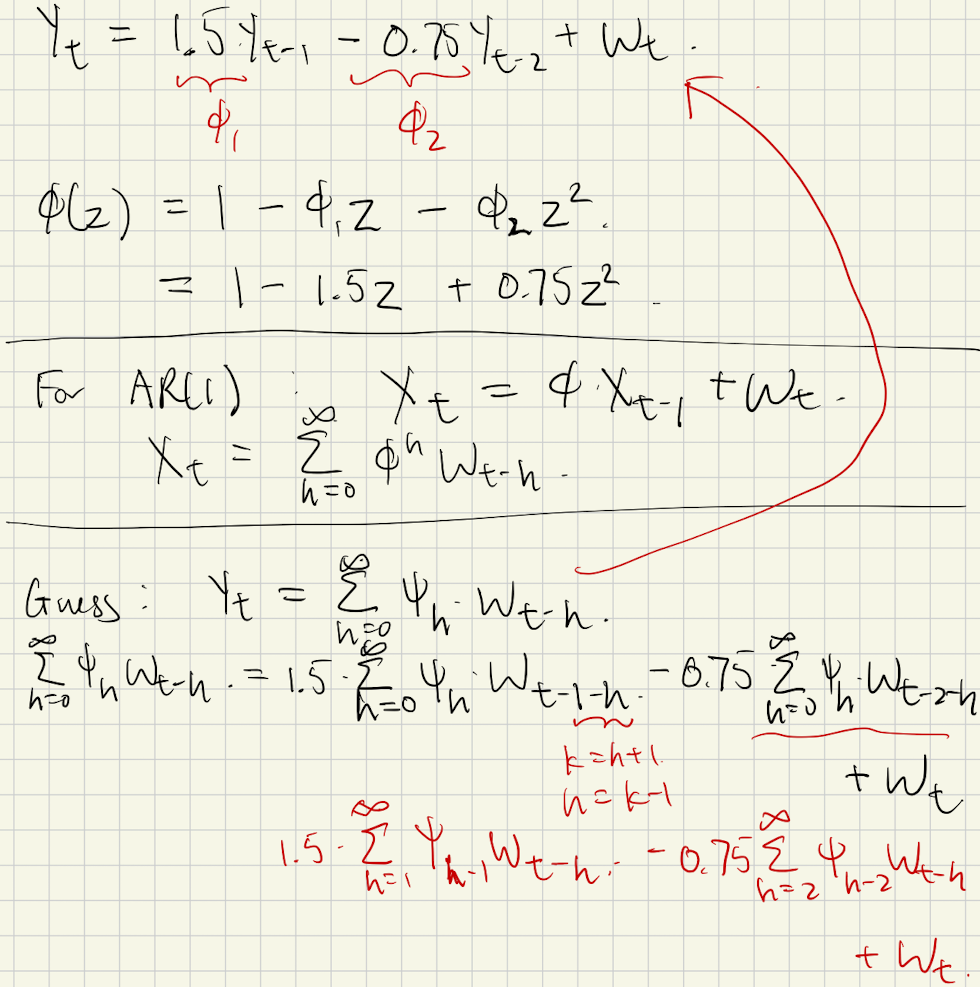 Y_t = 1.5 Y_{t-1} - 0.75 Y_{t-2} + W_t.
ϕ_1 ϕ_2
ϕ(z) = 1 - ϕ_1 z - ϕ_2 z^2.
= 1 - 1.5z + 0.75z^2.
For AR(1) : X_t = ϕ·X_{t-1} + W_t.
X_t = ∑_{h=0}^{∞} ϕ^h W_{t-h}.
Guess: Y_t = ∑_{h=0}^{∞} ψ_h·W_{t-h}.
∑_{h=0}^{∞} ψ_h W_{t-h}. = 1.5·∑_{h=0}^{∞} ψ_h·W_{t-1-h}. - 0.75 ∑_{h=0}^{∞} ψ_h·W_{t-2-h}
+ W_t
k = h+1.
h = k-1
1.5·∑_{h=1}^{∞} ψ_{h-1} W_{t-h}. - 0.75 ∑_{h=2}^{∞} ψ_{h-2} W_{t-h}
+ W_t.